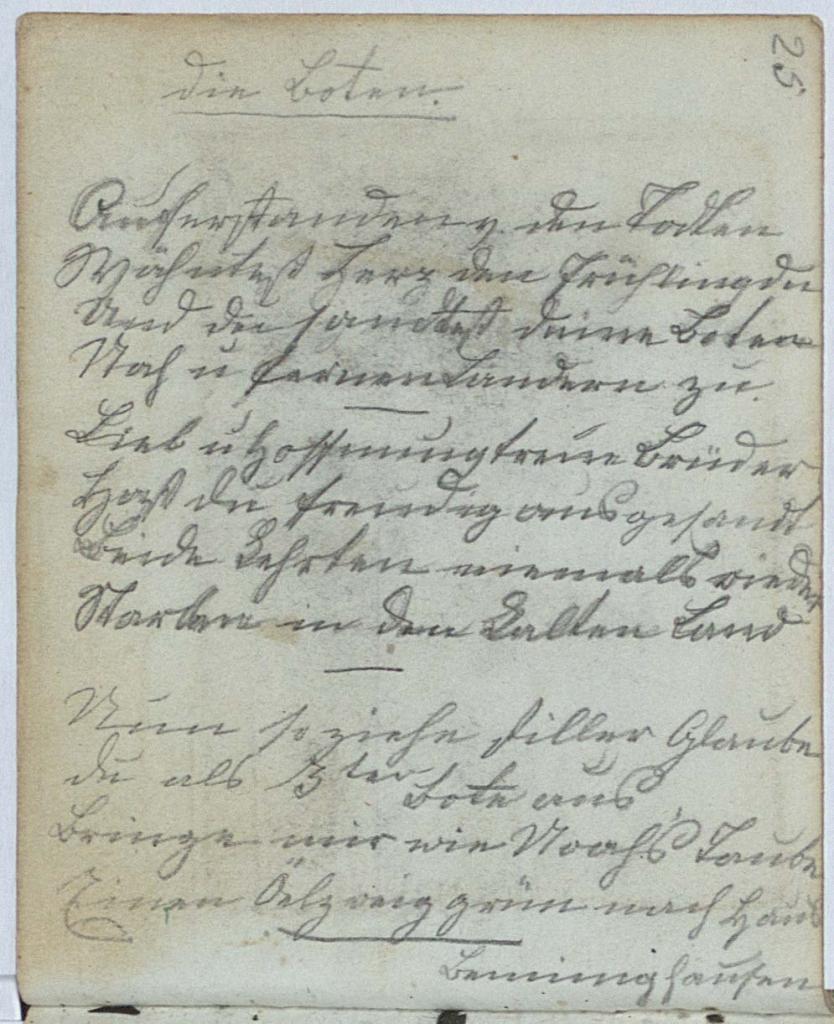 25
Die Boten.
Auferstanden v. den Todten
Wähntest Herz den Frühling du
Und du sandtest deine Boten
Nach u fernen Landern zu.
Lieb u Hoffnung treue Brüder
Hast du freudig ausgesandt
Beide kehrten niemals wieder
Starben in dem kalten Land
Nun so ziehe stiller Glaube
du als 3ter Bote aus,
Bringe mir wie Noahs Taube
Einen Öelzweig grün nach Haus
Benninghausen